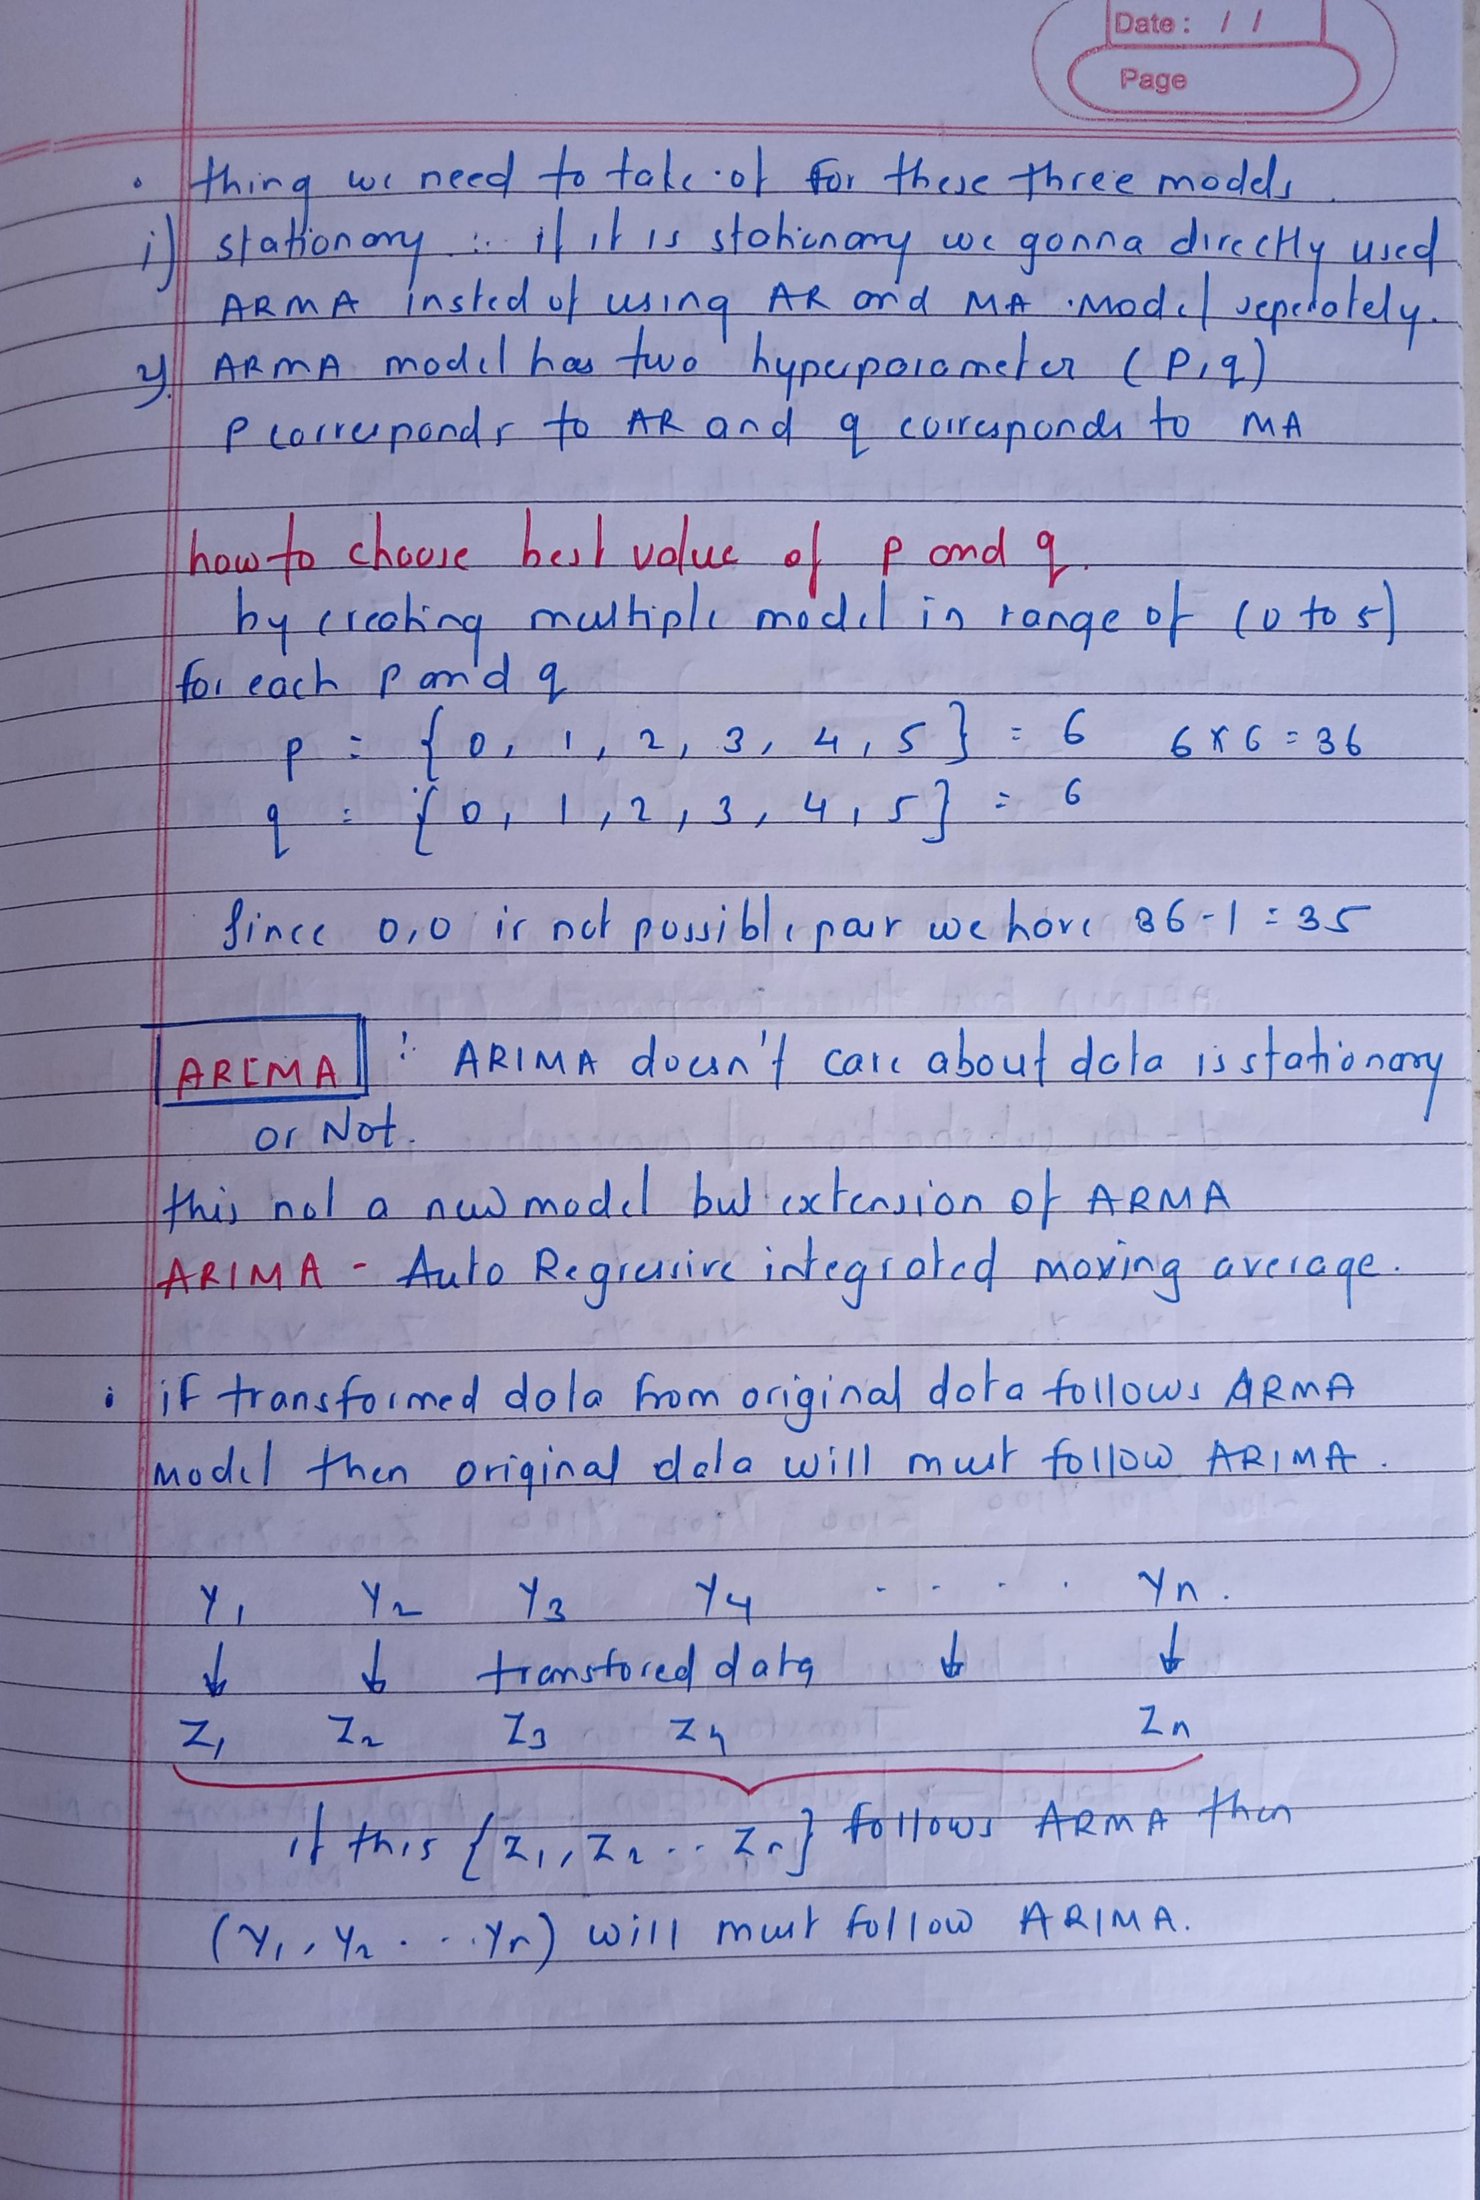 Date : / /
Page
• thing we need to take of for these three models
i) stationary : if it is stationary we gonna directly used
ARMA insted of using AR and MA Model seperately.
2) ARMA model has two hyperparameter (P, q)
P corresponds to AR and q corresponds to MA
how to choose best value of p and q.
by creating multiple model in range of (0 to 5)
for each p and q
p = {0, 1, 2, 3, 4, 5} = 6 6 x 6 = 36
q = {0, 1, 2, 3, 4, 5} = 6
Since 0,0 is not possible pair we have 36-1 = 35
ARIMA : ARIMA doesn't care about data is stationary
or Not.
this not a new model but extension of ARMA
ARIMA - Auto Regressive integrated moving average.
• if transformed data from original data follows ARMA
model then original data will must follow ARIMA.
Y1 Y2 Y3 Y4 . . . . Yn.
↓ ↓ transfored data ↓ ↓
Z1 Z2 Z3 Z4 Zn
if this {Z1, Z2 .. Zn} follows ARMA then
(Y1, Y2 . . . Yn) will must follow ARIMA.